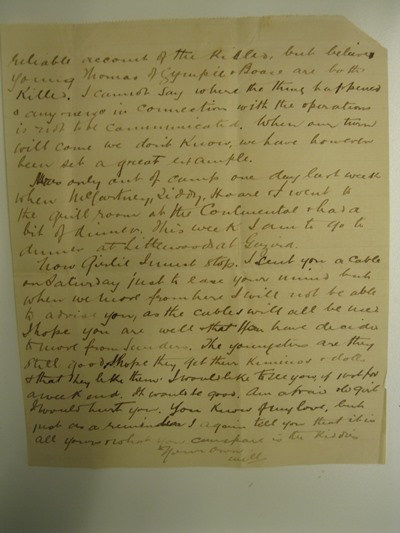 reliable account of the killed, but believe
young Thomas of Gympie & Boase are both
killed. I cannot say where the thing happened
& any news in connection with the operations
is not to be communicated. When our turn
will come we don't know, we have however
been set a great example.
Was only out of camp one day last week
when McCartney, Hoare & I went to
the grill room at the Continental & had a
bit of dinner. This week I am to go to
dinner at Littlewoods at Gezira.
Now Girlie I must stop. I sent you a cable
on Saturday just to ease your mind but
when we move from here I will not be able
to advise you, as the cables will all be used
I hope you are well & that have decided
to move from Sunders. The youngsters are they
still good, I hope they get their kiminos & doll
& that they like them. I would like to see you, if just for
a week end. It would be good. Am afraid old girl
I would hurt you. You know of my love, but
just as a reminder I again tell you that it is
all yours & what you is this
Your own